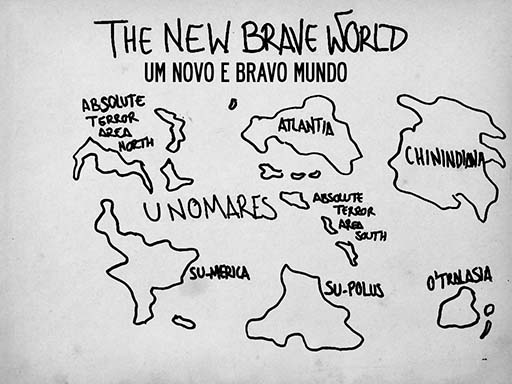 THE NEW BRAVE WORLD
UM NOVO E BRAVO MUNDO
ABSOLUTE
TERROR
AREA
NORTH
ATLANTIA
CHININDIANA
UNOMARES
ABSOLUTE
TERROR
AREA
SOUTH
SU-MERICA
SU-POLUS
O'TRALASIA